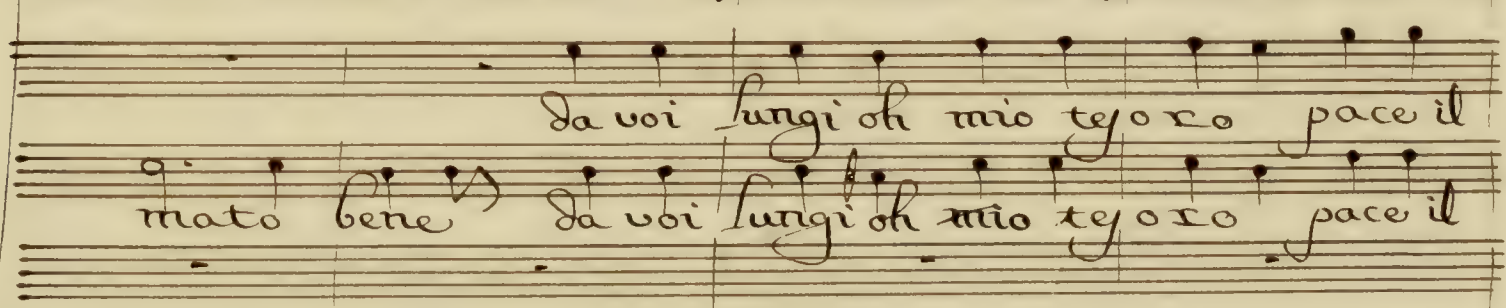 da voi lungi oh mio tesoro pace il
mato bene da voi lungi oh mio tesoro pace il